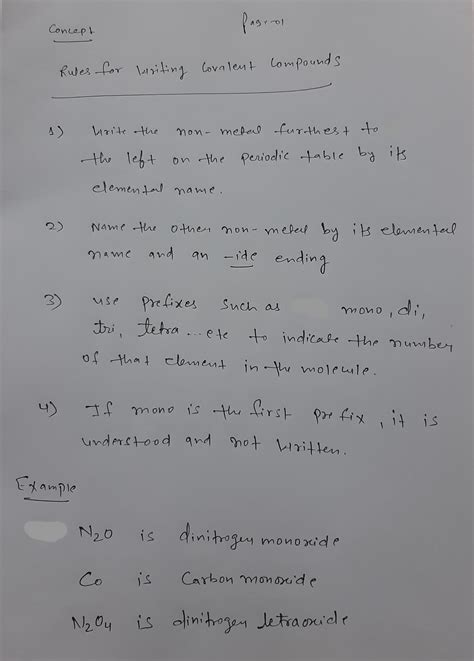 Concept
Page-01
Rules for Writing Covalent Compounds
1) Write the non-metal furthest to
the left on the periodic table by its
elemental name.
2) Name the other non-metal by its elemental
name and an -ide ending
3) use prefixes such as mono, di,
tri, tetra...etc to indicate the number
of that element in the molecule.
4) If mono is the first prefix, it is
understood and not written.
Example
N2O is dinitrogen monoxide
Co is Carbon monoxide
N2O4 is dinitrogen tetraoxide